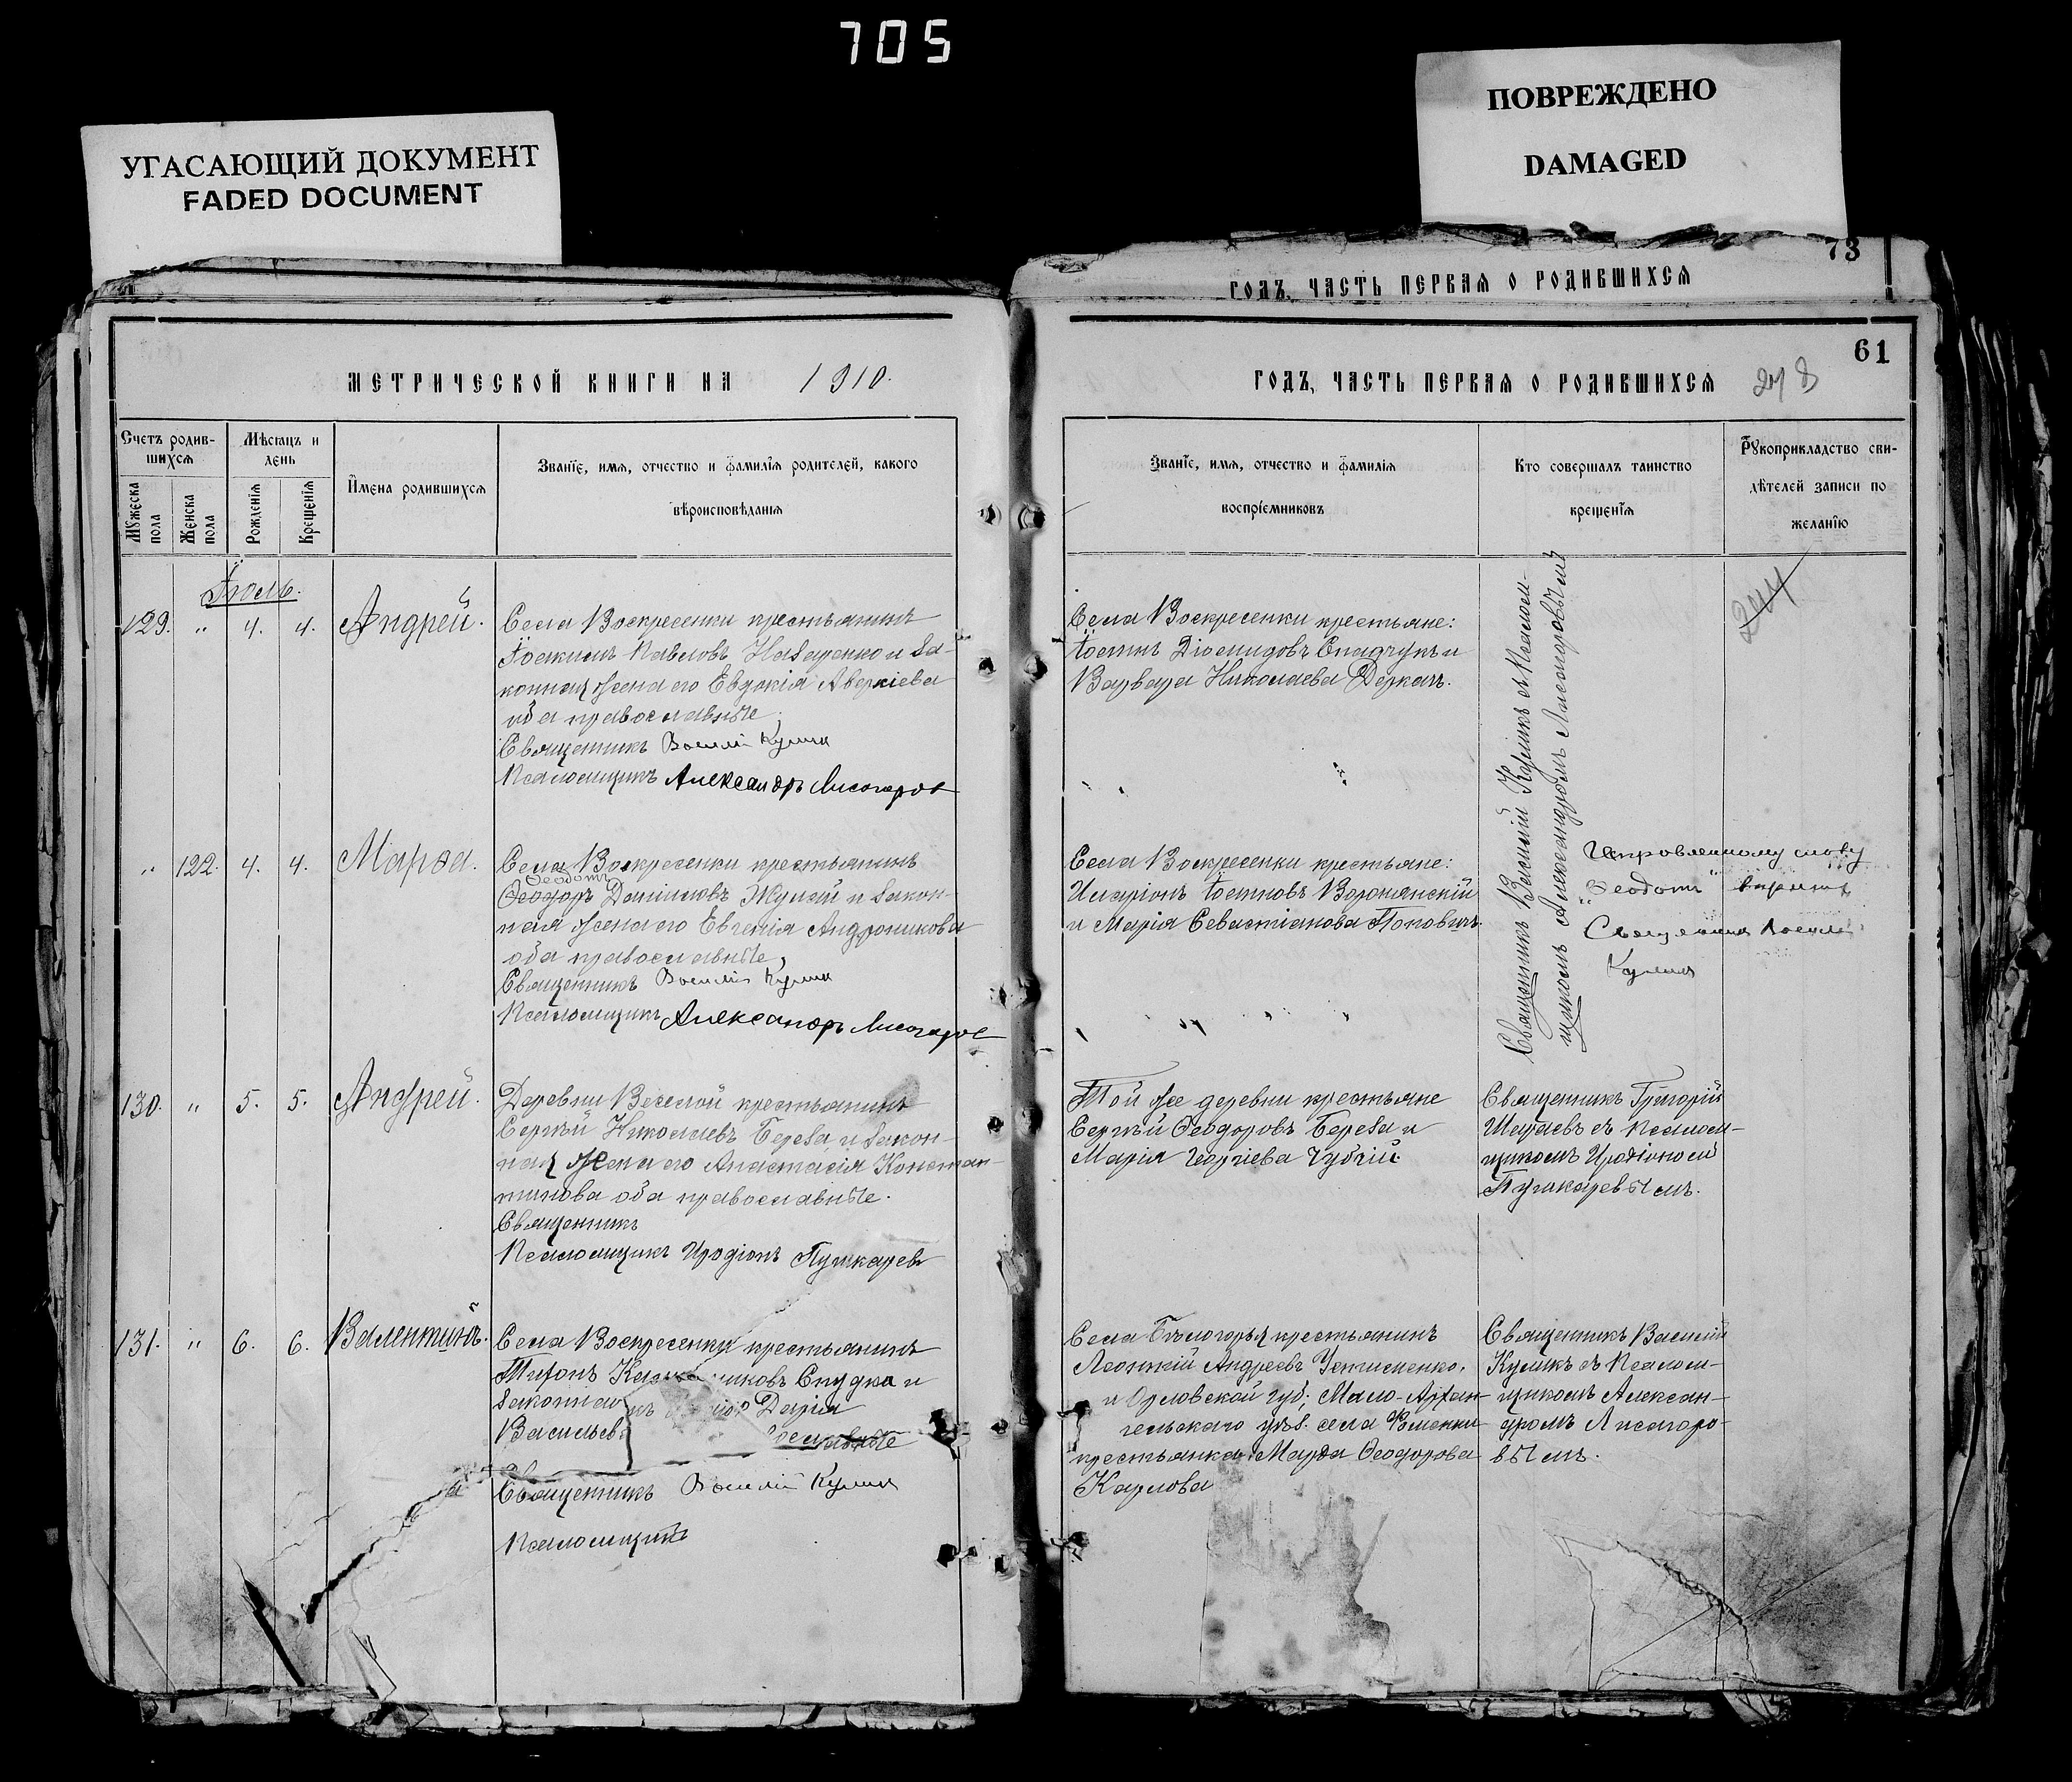 705
УГАСАЮЩИЙ ДОКУМЕНТ
FADED DOCUMENT
ПОВРЕЖДЕНО
DAMAGED
73
ГОДЪ, ЧАСТЬ ПЕРВАЯ О РОДИВШИХСЯ
МЕТРИЧЕСКОЙ КНИГИ НА 1910.
Счетъ родив-
шихся
Мужеска пола
Женска пола
Мѣсяцъ и
день
Рожденія
Крещенія
Имена родившихся
Званіе, имя, отчество и фамилія родителей, какого
вѣроисповѣданія
Іюль.
129. " 4. 4. Андрей.
Села Воскресенки крестьянинъ
Іоакимъ Павловъ Назаренко и за-
конная жена его Евдокія Аверкіева
оба православные.
Священникъ Василій Куликъ
Псаломщикъ Александръ Лисогоровъ
" 122. 4. 4. Марѳа.
Села Воскресенки крестьянинъ
Ѳеодотъ
Ѳеодоръ Даниловъ Жулай и закон-
ная жена его Евгенія Андроникова
оба православные,
Священникъ Василій Куликъ
Псаломщикъ Александръ Лисогоров
130. " 5. 5. Андрей.
Деревни Веселой крестьянинъ
Сергѣй Николаевъ Береза и закон-
ная жена его Анастасія Констан-
тинова оба православные.
Священникъ
Псаломщикъ Иродіонъ Пушкарев
131. " 6. 6. Валентинъ.
Села Воскресенки крестьянинъ
Тихонъ Спудка и
законная Дарія
Васильев
Священникъ Василій Куликъ
Псаломщикъ
61
ГОДЪ, ЧАСТЬ ПЕРВАЯ О РОДИВШИХСЯ
Званіе, имя, отчество и фамилія
воспріемниковъ
Кто совершалъ таинство
крещенія
Рукоприкладство сви-
дѣтелей записи по
желанію
244
Села Воскресенки крестьяне:
Діомидовъ Спадчукъ и
Варвара Николаева Деркачъ.
Священникъ Василій Куликъ съ Псалом-
щикомъ Александромъ Лисогоровымъ
Села Воскресенки крестьяне:
Иларіонъ Воронянскій
и Марія Севастіанова Поповичъ.
Исправленному слову
"Ѳеодотъ" вѣрить
Священникъ Василій
Куликъ
Той же деревни крестьяне
Сергѣй Ѳеодоровъ Береза и
Марія Георгіева Чубчій.
Священникъ Григорій
Шараевъ съ Псалом-
щикомъ Иродіономъ
Пушкаревымъ.
Села Бѣлогорья крестьянинъ
Леонтій Андреевъ Устименко,
и Орловской губ., Мало-Архан-
гельскаго уѣз. села Фоменки
крестьянка Марѳа Ѳеодорова
Карлова
Священникъ Василій
Куликъ съ Псалом-
щикомъ Алексан-
дромъ Лисогоро-
вымъ.